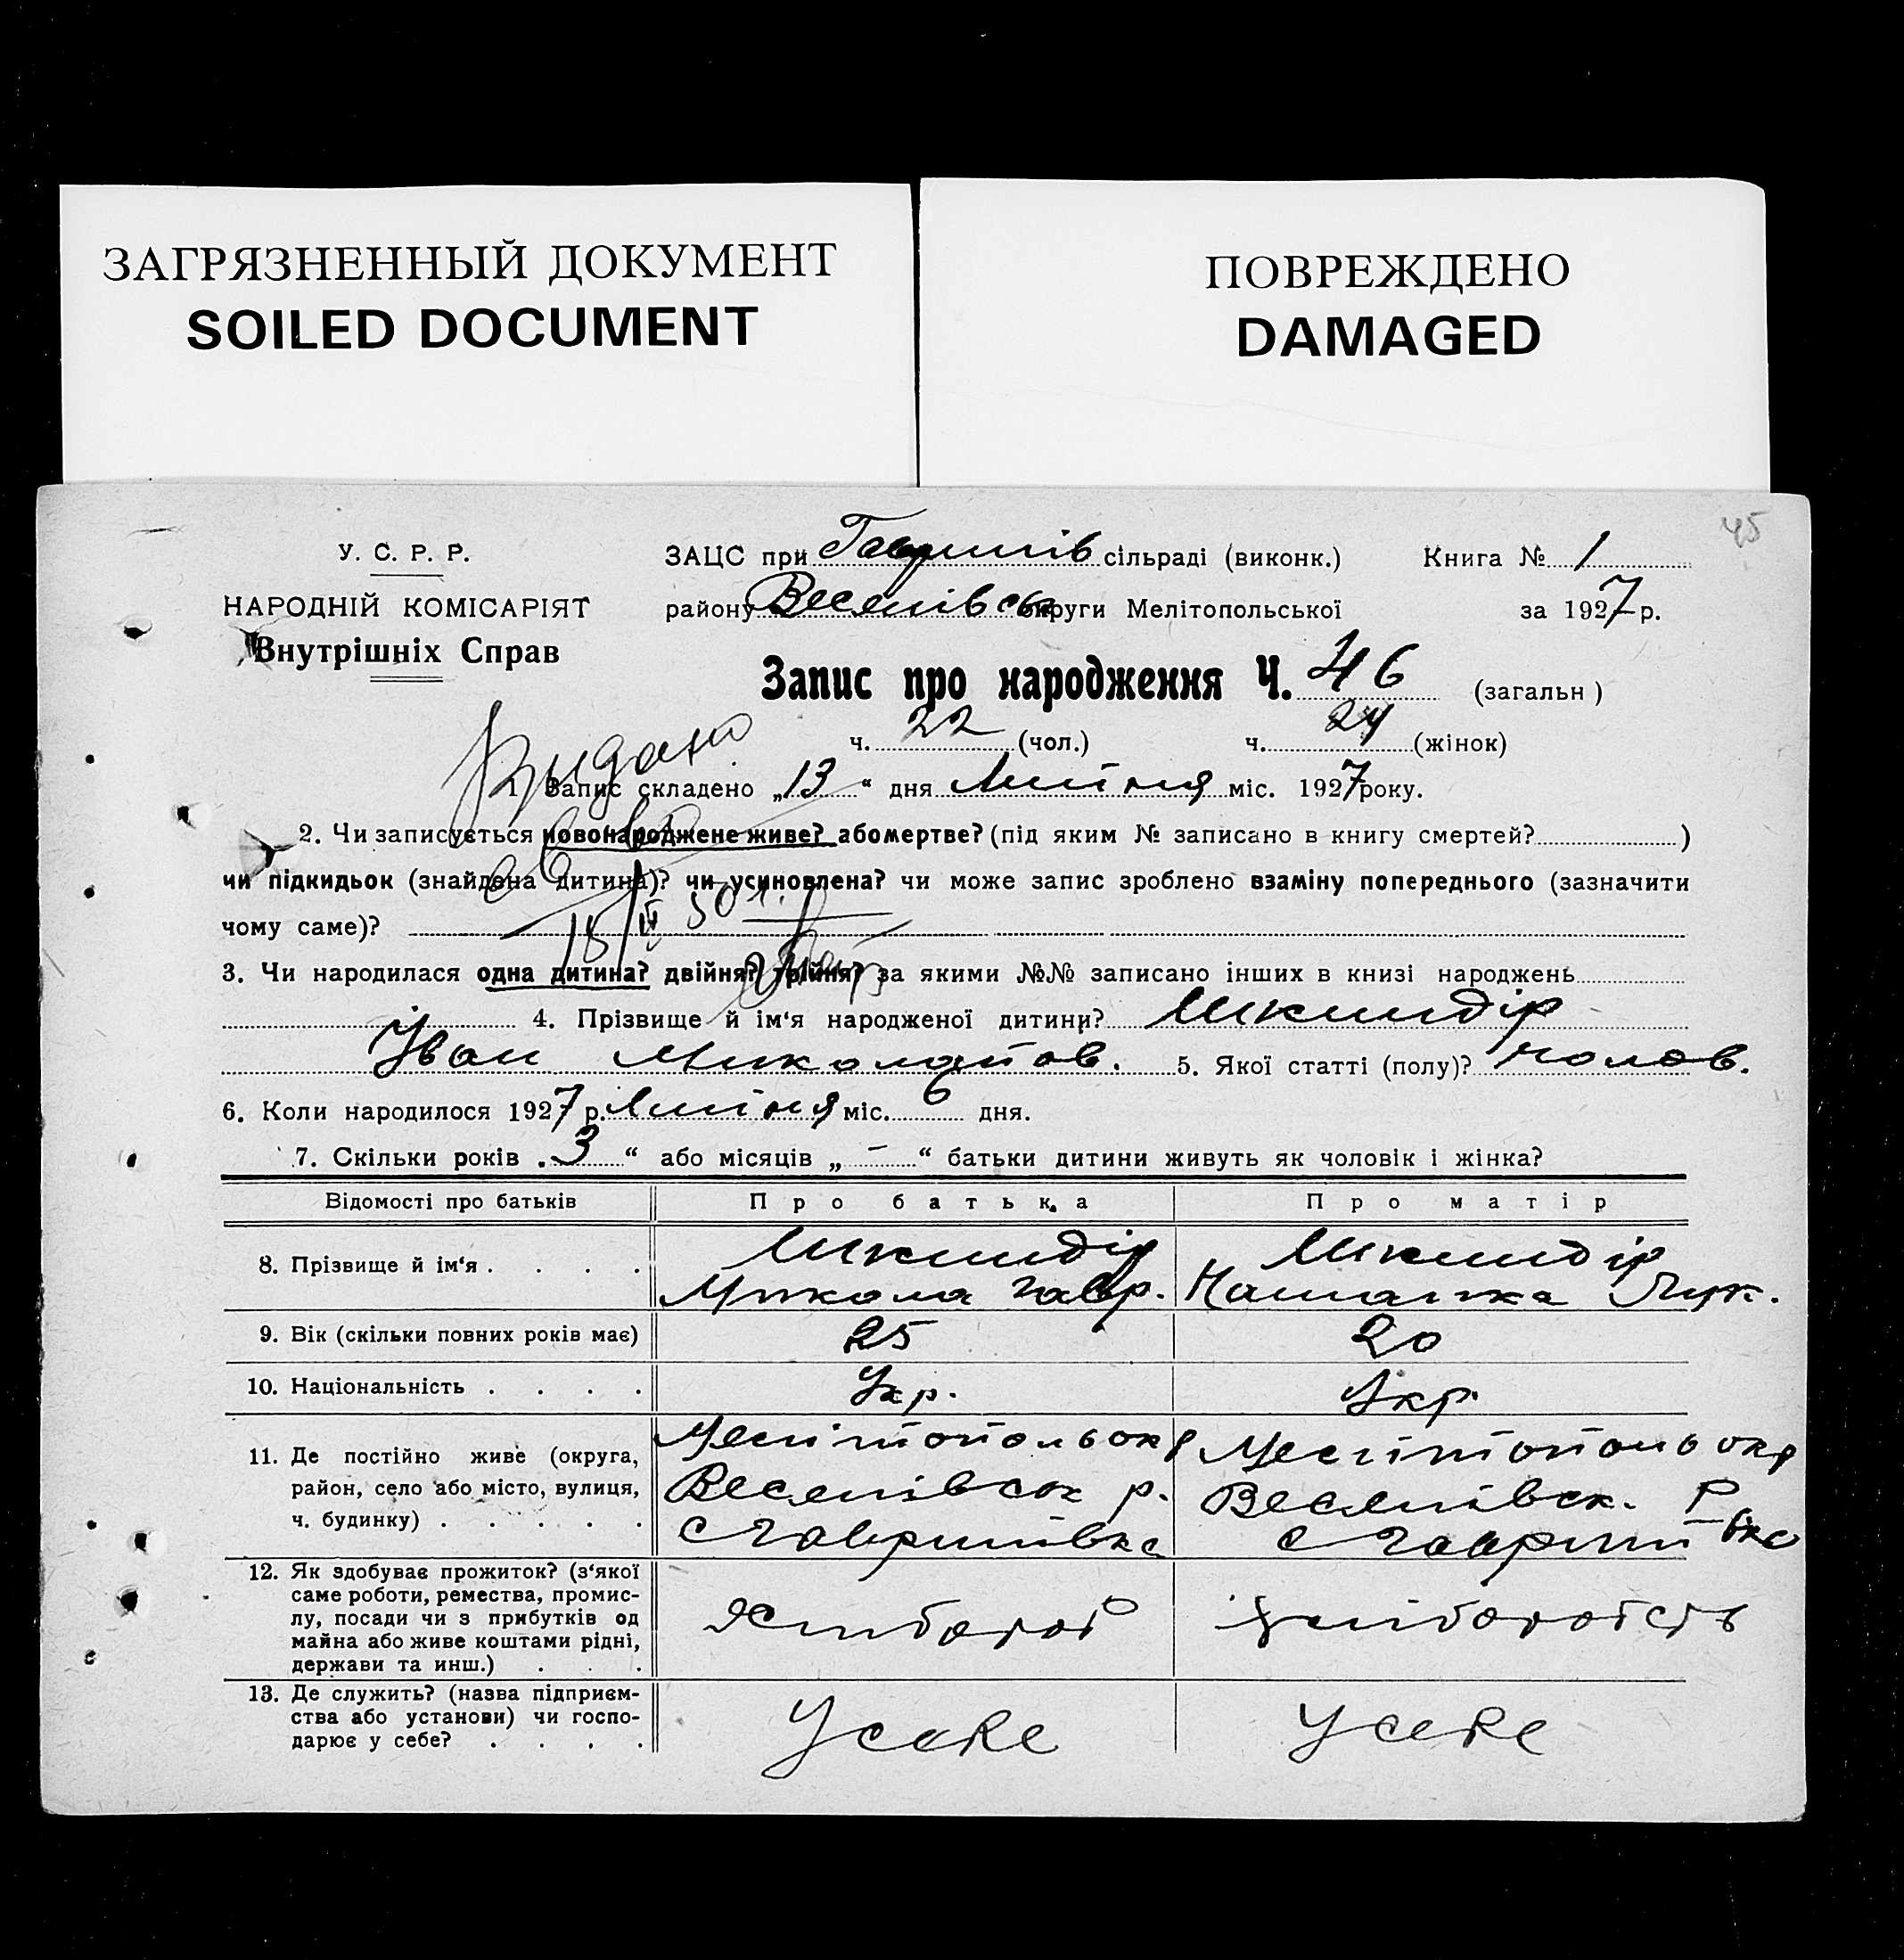 ЗАГРЯЗНЕННЫЙ ДОКУМЕНТ
SOILED DOCUMENT
ПОВРЕЖДЕНО
DAMAGED
45
У. С. Р. Р.
НАРОДНІЙ КОМІСАРІЯТ
Внутрішніх Справ
ЗАЦС при Гаврилів сільраді (виконк.) Книга № 1
району Веселівськ округи Мелітопольської за 1927 р.
Запис про народження Ч. 46 (загальн )
ч. 22 (чол.) ч. 24 (жінок)
Видано
1 Запис складено „13“ дня Липня міс. 1927 року.
2. Чи записується новонароджене живе? або мертве? (під яким № записано в книгу смертей? )
чи підкидьок (знайдена дитина)? чи усиновлена? чи може запис зроблено взаміну попереднього (зазначити
чому саме)?
18/IV 30 р.
3. Чи народилася одна дитина? двійня? трійня? за якими №№ записано інших в книзі народжень
4. Прізвище й ім‘я народженої дитини? Шкиндір
Іван Миколайов. 5. Якої статті (полу)? чолов.
6. Коли народилося 1927 р. Липня міс. 6 дня.
7. Скільки років „3“ або місяців „ – “ батьки дитини живуть як чоловік і жінка?
Відомості про батьків Про батька Про матір
8. Прізвище й ім‘я . . . . Шкиндір Шкиндір
Микола Гавр. Наталка Лук.
9. Вік (скільки повних років має) 25 20
10. Національність . . . . Укр. Укр.
11. Де постійно живе (округа, Мелітопольок Мелітопольок
район, село або місто, вулиця, Веселівськ р. Веселівск. Р
ч. будинку) . . . . . с Гаврилівка с Гаврилівка
12. Як здобуває прожиток? (з‘якої
саме роботи, ремества, промис-
лу, посади чи з прибутків од Хлібороб хліборобств
майна або живе коштами рідні,
держави та инш.) . . .
13. Де служить? (назва підприєм-
ства або установи) чи госпо- У себе У себе
дарює у себе? . . . .